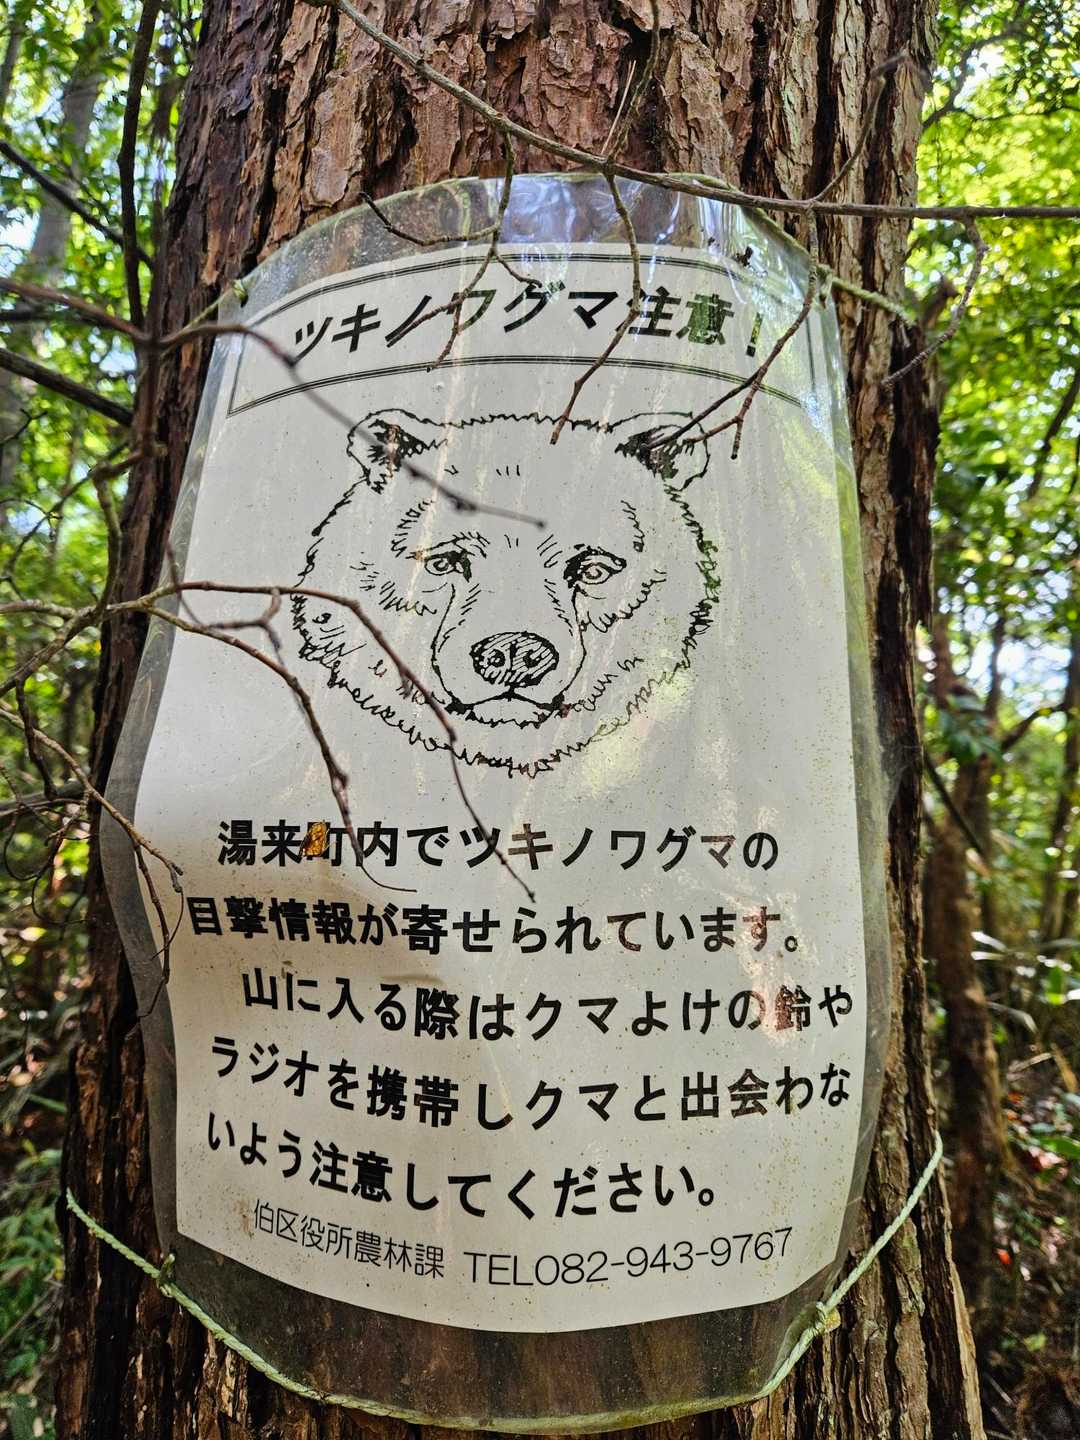 ツキノワグマ注意!
湯来町内でツキノワグマの
目撃情報が寄せられています。
山に入る際はクマよけの鈴や
ラジオを携帯しクマと出会わな
いよう注意してください。
伯区役所農林課 TEL082-943-9767